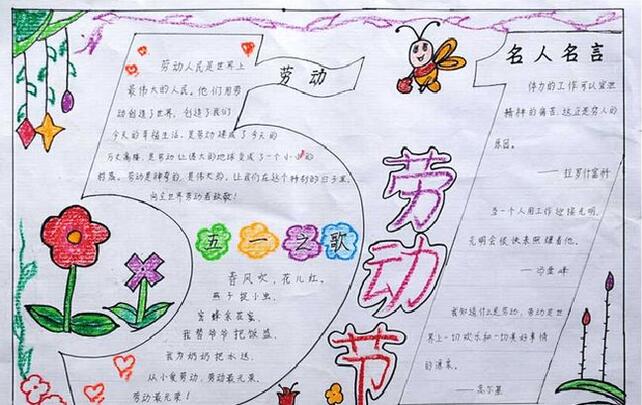 劳动
劳动人民是世界上
最伟大的人民。他们用劳
动创造了世界，创造了我们
今天的幸福生活。是劳动建成了今天的
万丈高楼，是劳动让偌大的地球变成了一个小小的
村落。劳动是神奇的，是伟大的，让我们在这个特别的日子里，
向全世界劳动者致敬！
五一之歌
春风吹，花儿红。
燕子捉小虫，
蜜蜂采花蜜，
我替爷爷把饭盛，
我为奶奶把水送，
从小爱劳动，劳动最光荣，
劳动最光荣！
劳动节
名人名言
体力的工作可以宽泄
精神的痛苦，这正是穷人的
乐园。
——拉罗什富科
当一个人用工作迎接光明，
光明会很快来照耀着他。
——冯学峰
我知道什么是劳动，劳动是世
界上一切欢乐和一切美好事情
的源泉。
——高尔基